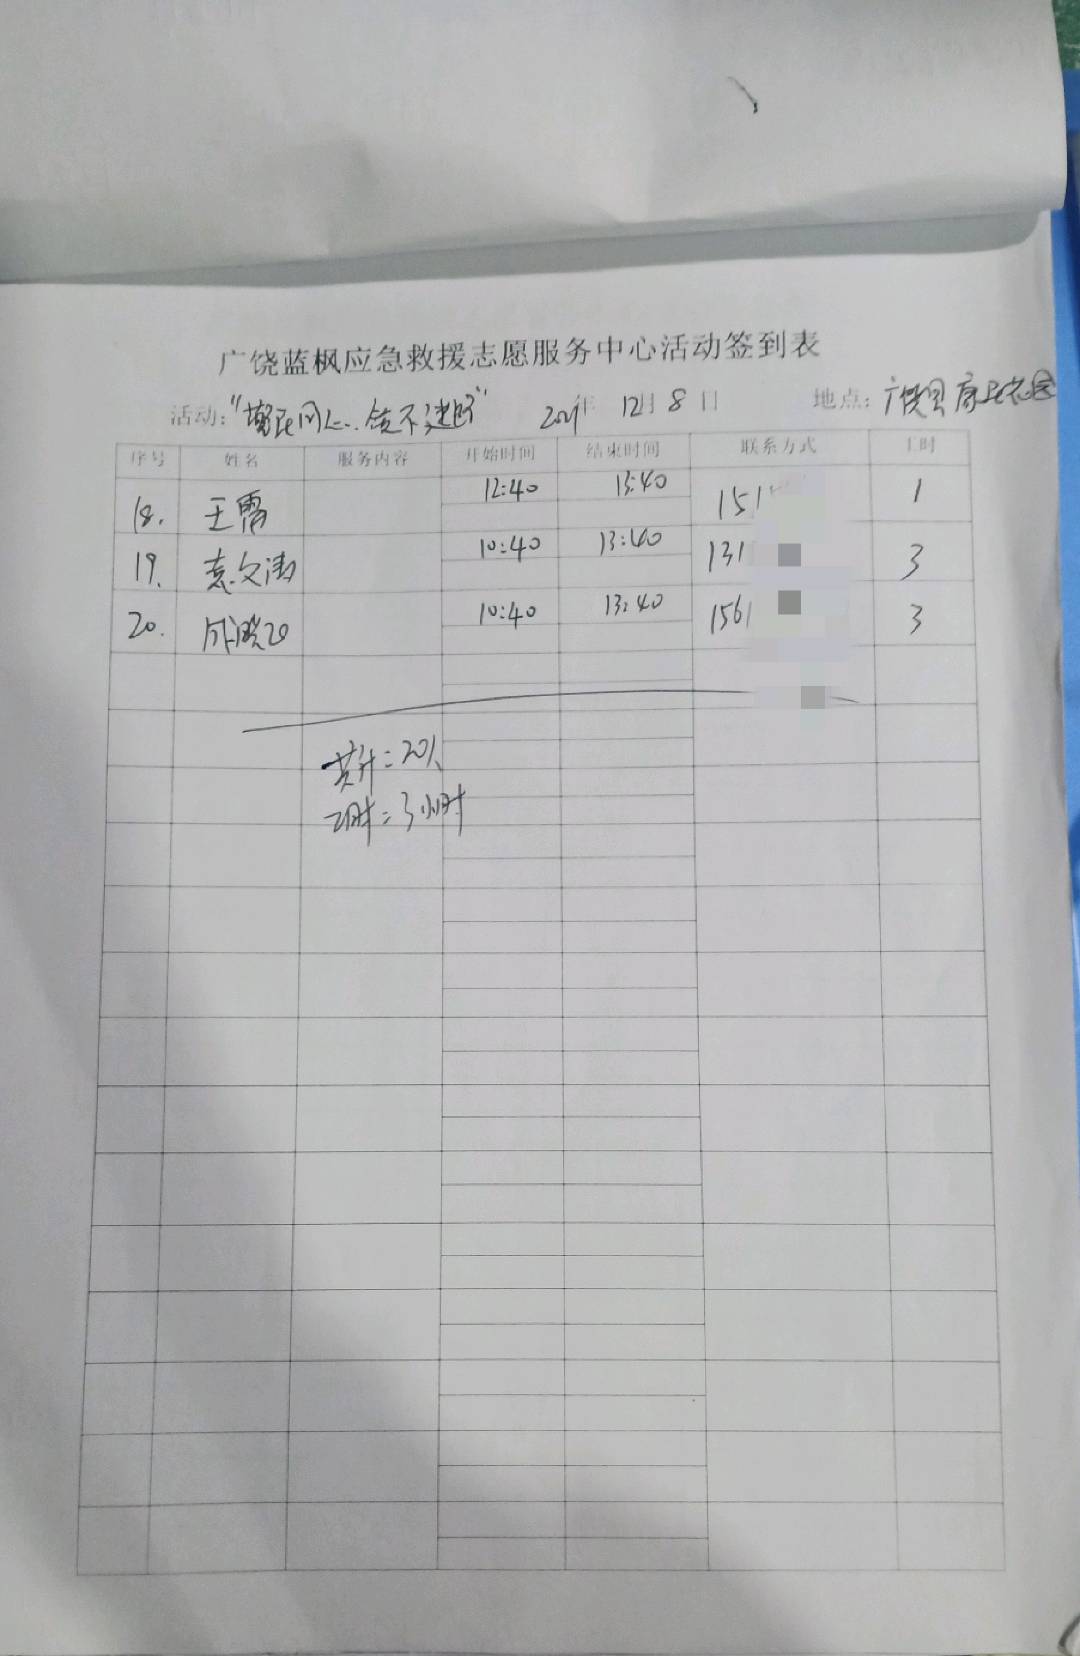 广饶蓝枫应急救援志愿服务中心活动签到表
活动: 2021年 12月 8日 地点: 广饶县
序号 姓名 服务内容 开始时间 结束时间 联系方式 工时
18. 王霄 12:40 13:40 151 1
19. 袁文涛 10:40 13:40 131 3
20. 10:40 13:40 1561 3
共计=20人
工时=3小时